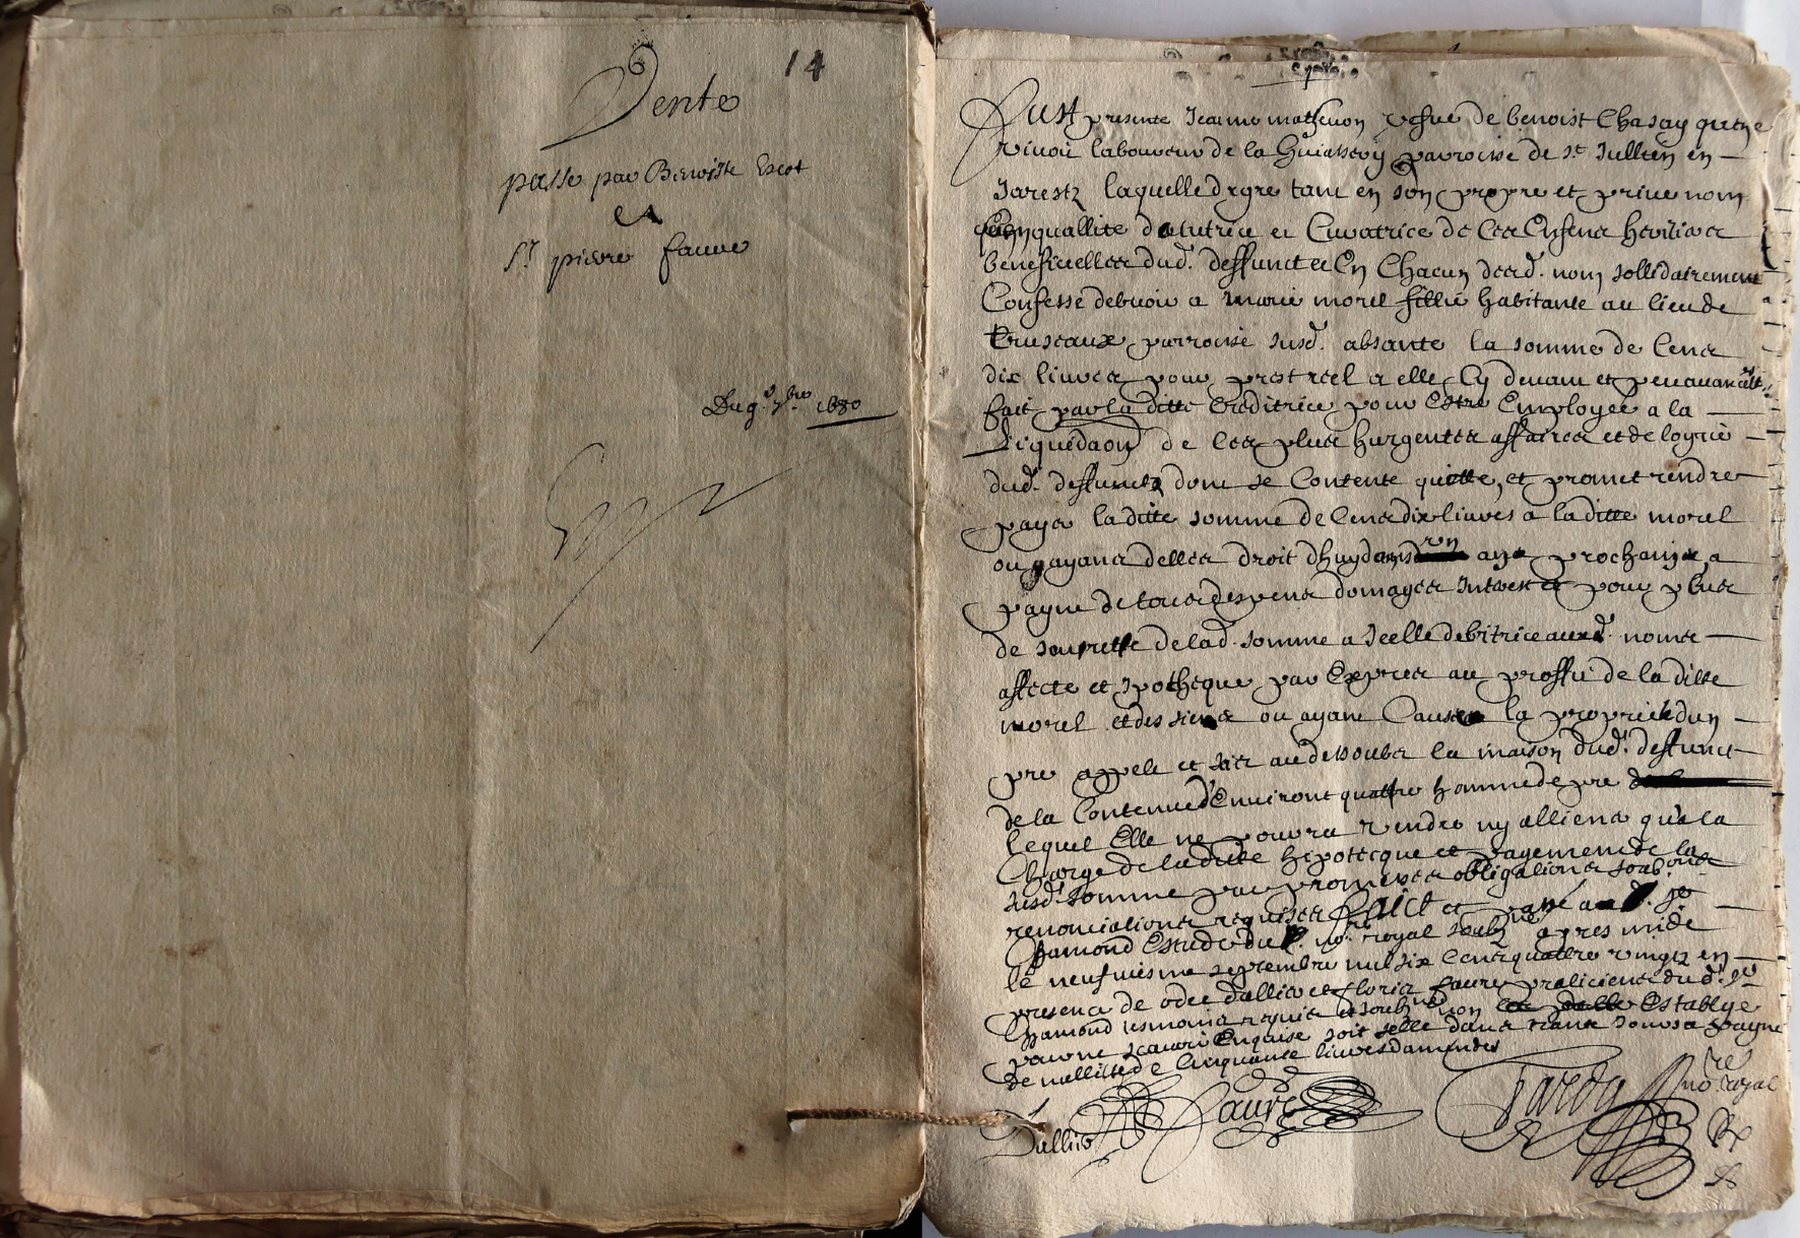 14
Vente
passe par Benoiste Escot
et
Sr pierre faure
Du 9e 7bre 1680
Fust presente Jeanne mathevon vefve de benoist Chasay quand
vivoit laboureur de la parroisse de St Jullien en
Jarestz laquelle de gre tant en son propre et prive nom
quen quallite de tutrice et Curatrice de ses Enfens heritiers
beneficielles dud. deffunct et En Chacun desd. nom sollidairement
Confesse debvoir a marie morel fillie habitante au lieu de
Cruseaux parroisse susd. absante la somme de Cens
dix livres pour prest reel a elle Cy devant et
fait par la ditte Creditrice pour Estre Employee a la
Liquidaon de ses plus hurgentes affaires et de loyrie
dud. deffunct dont se Contente quitte, et promet rendre
payer la ditte somme de Cens dix livres a la ditte morel
ou ayans delles droit dhuy dans un an prochain, a
payne de tous despens domages Interest et pour plus
de seurette de lad. somme a Icelle debitrice auxd. noms
affecte et ypotheque par Expres au proffit de la ditte
morel et des siens ou ayant Cause la propriete dun
pre appele et sis au dessoubs la maison dud. deffunct
de la Contenue dEnviront quattre homme de pre
lequel Elle ne pourra vendre ny alliener qua la
Charge de la ditte hipotecque et payement de la
susd. somme par promesses obligations soub.ons
renonciations requises Faict et passe a St
Chamond Estude du no.re royal soubz.ne apres midi
le neufviesme septembre mil six Cens quattre vingtz en
presence de odet dallier et floris faure praticiens dud. St
Chamond tesmoins requis et soubz.nes non Establye
pour ne scavoir Enquise soit selle dans trans jours a payne
de nullite de Cinquante livres damendes
Dallier
Faure
Tardy no.re royal